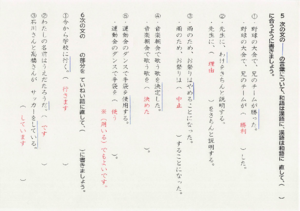 5 次の文の の言葉について、和語は漢語に、漢語は和語に
に合うように書きましょう。
① 野球の大会で、兄のチームが勝った。
野球の大会で、兄のチームが( 勝利 )した。
② 先生に、わけをきちんと説明する。
・先生に、( 理由 )をきちんと説明する。
③ 雨のため、お祭りはやめることになった。
雨のため、お祭りは( 中止 )することになった。
④ 音楽会で歌う歌を決定した。
音楽会で歌う歌を( 決めた )。
⑤ 運動会のダンスで手袋を使用する。
運動会のダンスで手袋を( 使う )。
※(用いる)でもよいです。
6 次の文の の部分を、ていねい語に直して、( )に書きましょう。
① 今から学校に行く。( 行きます )
②わたしの名前はうえだたろうだ。( です )
③ 石川さんと高橋さんが、サッカーをしている。
( しています )